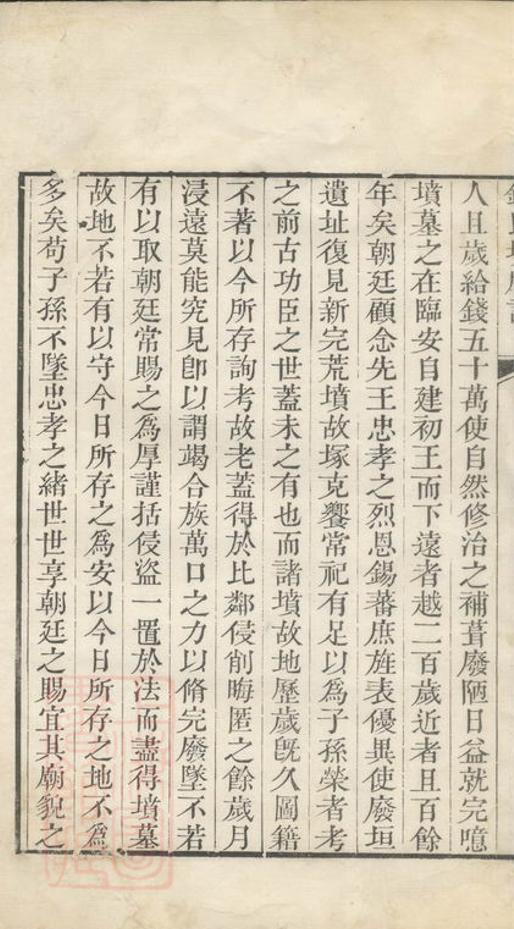 人且歲給錢五十萬使自然修治之補葺廢陋日益就完噫
墳墓之在臨安自建初王而下遠者越二百歲近者且百餘
年矣朝廷顧念先王忠孝之烈恩錫蕃庶旌表優異使廢垣
遺址復見新完荒墳故塚克饗常祀有足以爲子孫榮者考
之前古功臣之世蓋未之有也而諸墳故地歷歲旣久圖籍
不著以今所存詢考故老蓋得於比鄰侵削晦匿之餘歲月
浸遠莫能究見卽以謂竭合族萬口之力以脩完廢墜不若
有以取朝廷常賜之爲厚謹括侵盜一置於法而盡得墳墓
故地不若有以守今日所存之爲安以今日所存之地不爲
多矣苟子孫不墜忠孝之緒世世享朝廷之賜宜其廟貌之